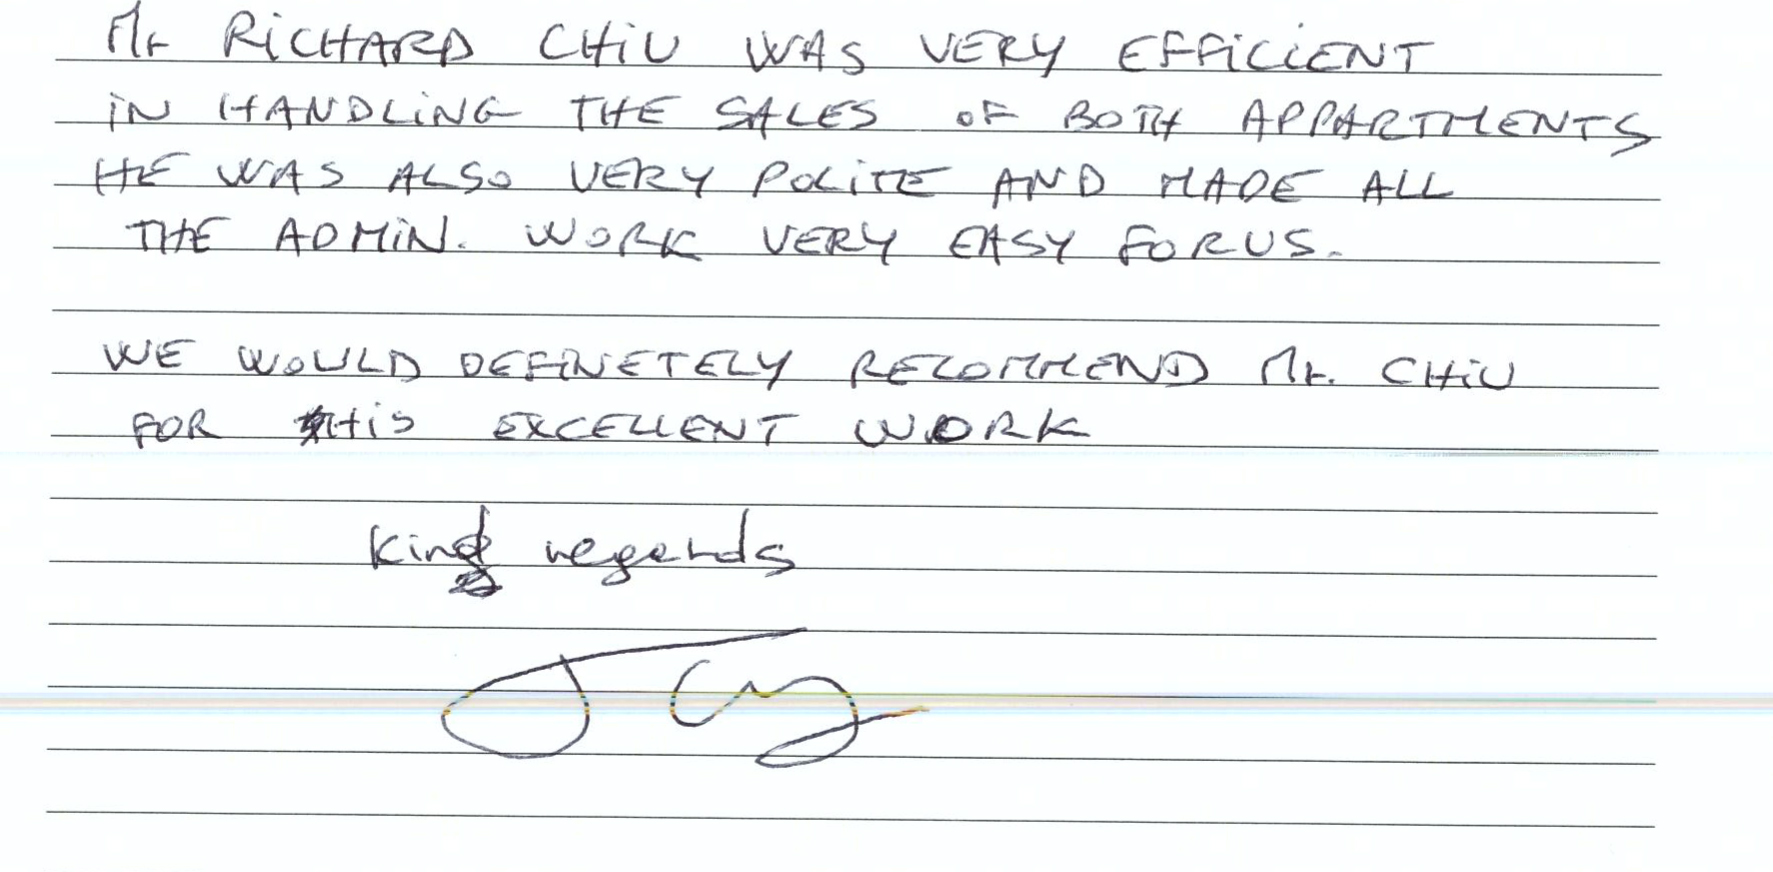 Mr RiCHARD CHiU WAS VERY EFFiCiENT
iN HANDLiNG THE SALES OF BOTH APPARTMENTS
HE WAS ALSO VERY POLiTE AND MADE ALL
THE ADMiN. WORK VERY EASY FOR US.
WE WOULD DEFiNETELY RECOMMEND Mr. CHiU
FOR HiS EXCELLENT WORK
Kind regards